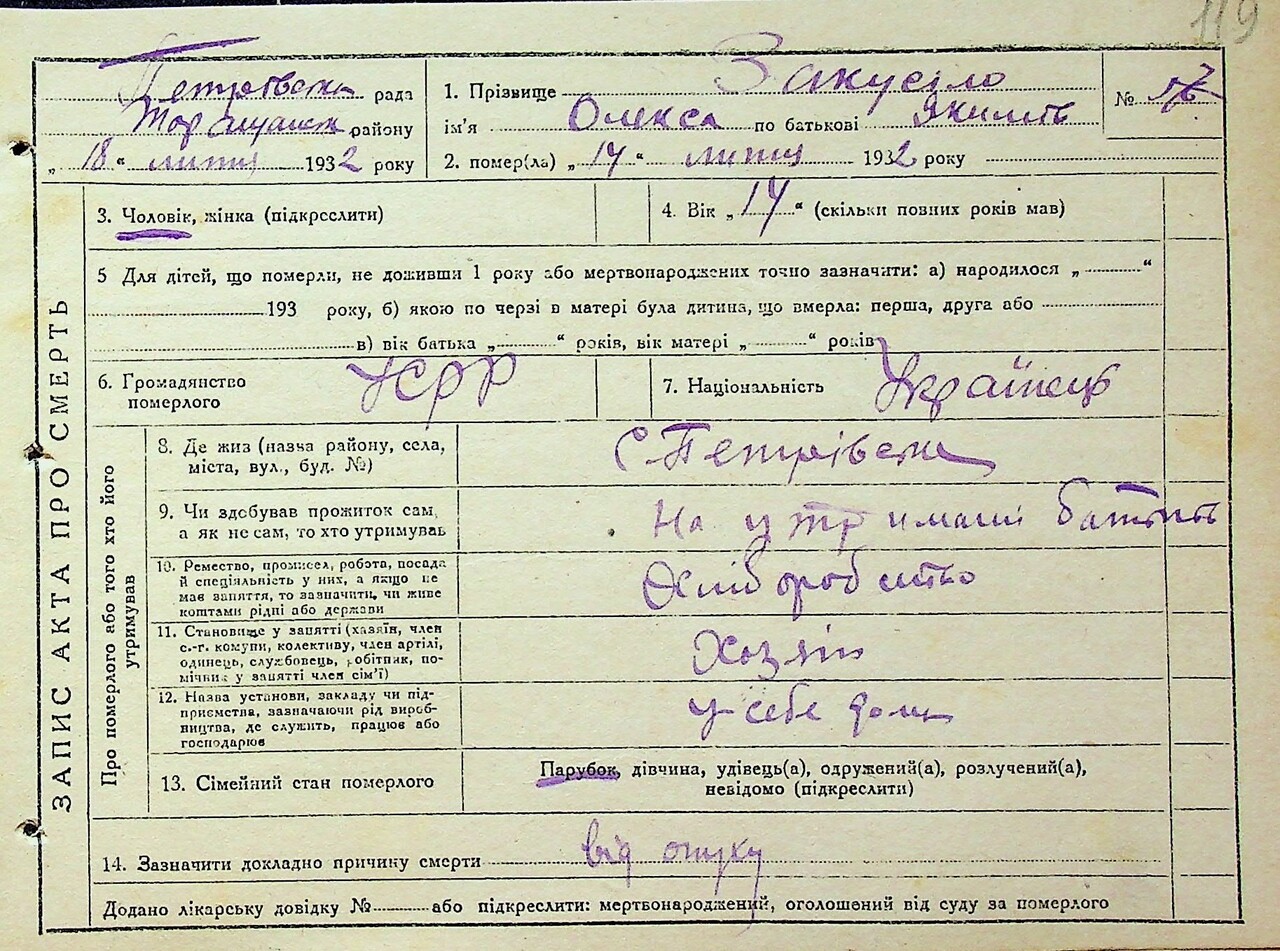 119
Петрівська рада
району
„ 18 “ лютц 1932 року
1. Прізвище Закусіло
ім'я Олекса по батькові Якимів
№
2. помер(ла) „ 14 “ лютц 1932 року
3. Чоловік, жінка (підкреслити)
4. Вік „ 14 “ (скільки повних років мав)
5 Для дітей, що померли, не доживши 1 року або мертвонароджених точно зазначити: а) народилося „ “
193 року, б) якою по черзі в матері була дитина, що вмерла: перша, друга або
в) вік батька „ “ років, вік матері „ “ років
6. Громадянство
померлого
УСРР
7. Національність Українець
ЗАПИС АКТА ПРО СМЕРТЬ
Про померлого або того хто його
утримував
8. Де жив (назва району, села,
міста, вул., буд. №)
С. Петрівська
9. Чи здобував прожиток сам,
а як не сам, то хто утримував
На утриманні батьків
10. Ремество, промисел, робота, посада
й спеціяльність у них, а якщо не
має заняття, то зазначити, чи живе
коштами рідні або держави
Хліборобство
11. Становище у занятті (хазяїн, член
с.-г. комуни, колективу, член артілі,
одинець, службовець, робітник, по-
мічник у занятті член сім'ї)
Хозяїн
12. Назва установи, закладу чи під-
приємства, зазначаючи рід вироб-
ництва, де служить, працює або
господарює
у себе дома
13. Сімейний стан померлого
Парубок, дівчина, удівець(а), одружений(а), розлучений(а),
невідомо (підкреслити)
14. Зазначити докладно причину смерти від опуху
Додано лікарську довідку № або підкреслити: мертвонароджений, оголошений від суду за померлого